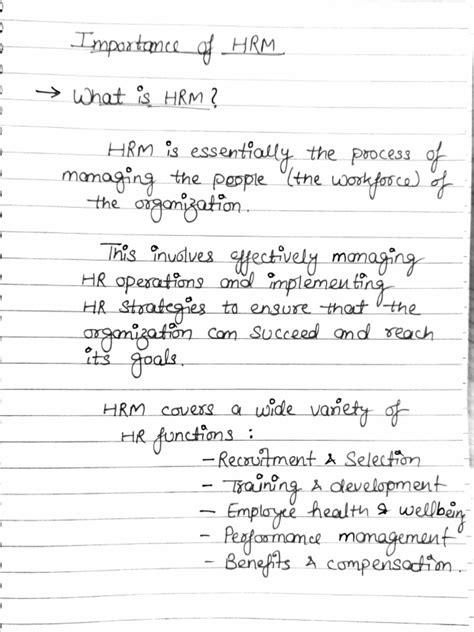 Importance of HRM
→ What is HRM?
HRM is essentially the process of
managing the people (the workforce) of
the organization.
This involves effectively managing
HR operations and implementing
HR strategies to ensure that the
organization can succeed and reach
its goals.
HRM covers a wide variety of
HR functions :
- Recruitment & Selection
- Training & development
- Employee health & wellbeing
- Performance management
- Benefits & compensation.